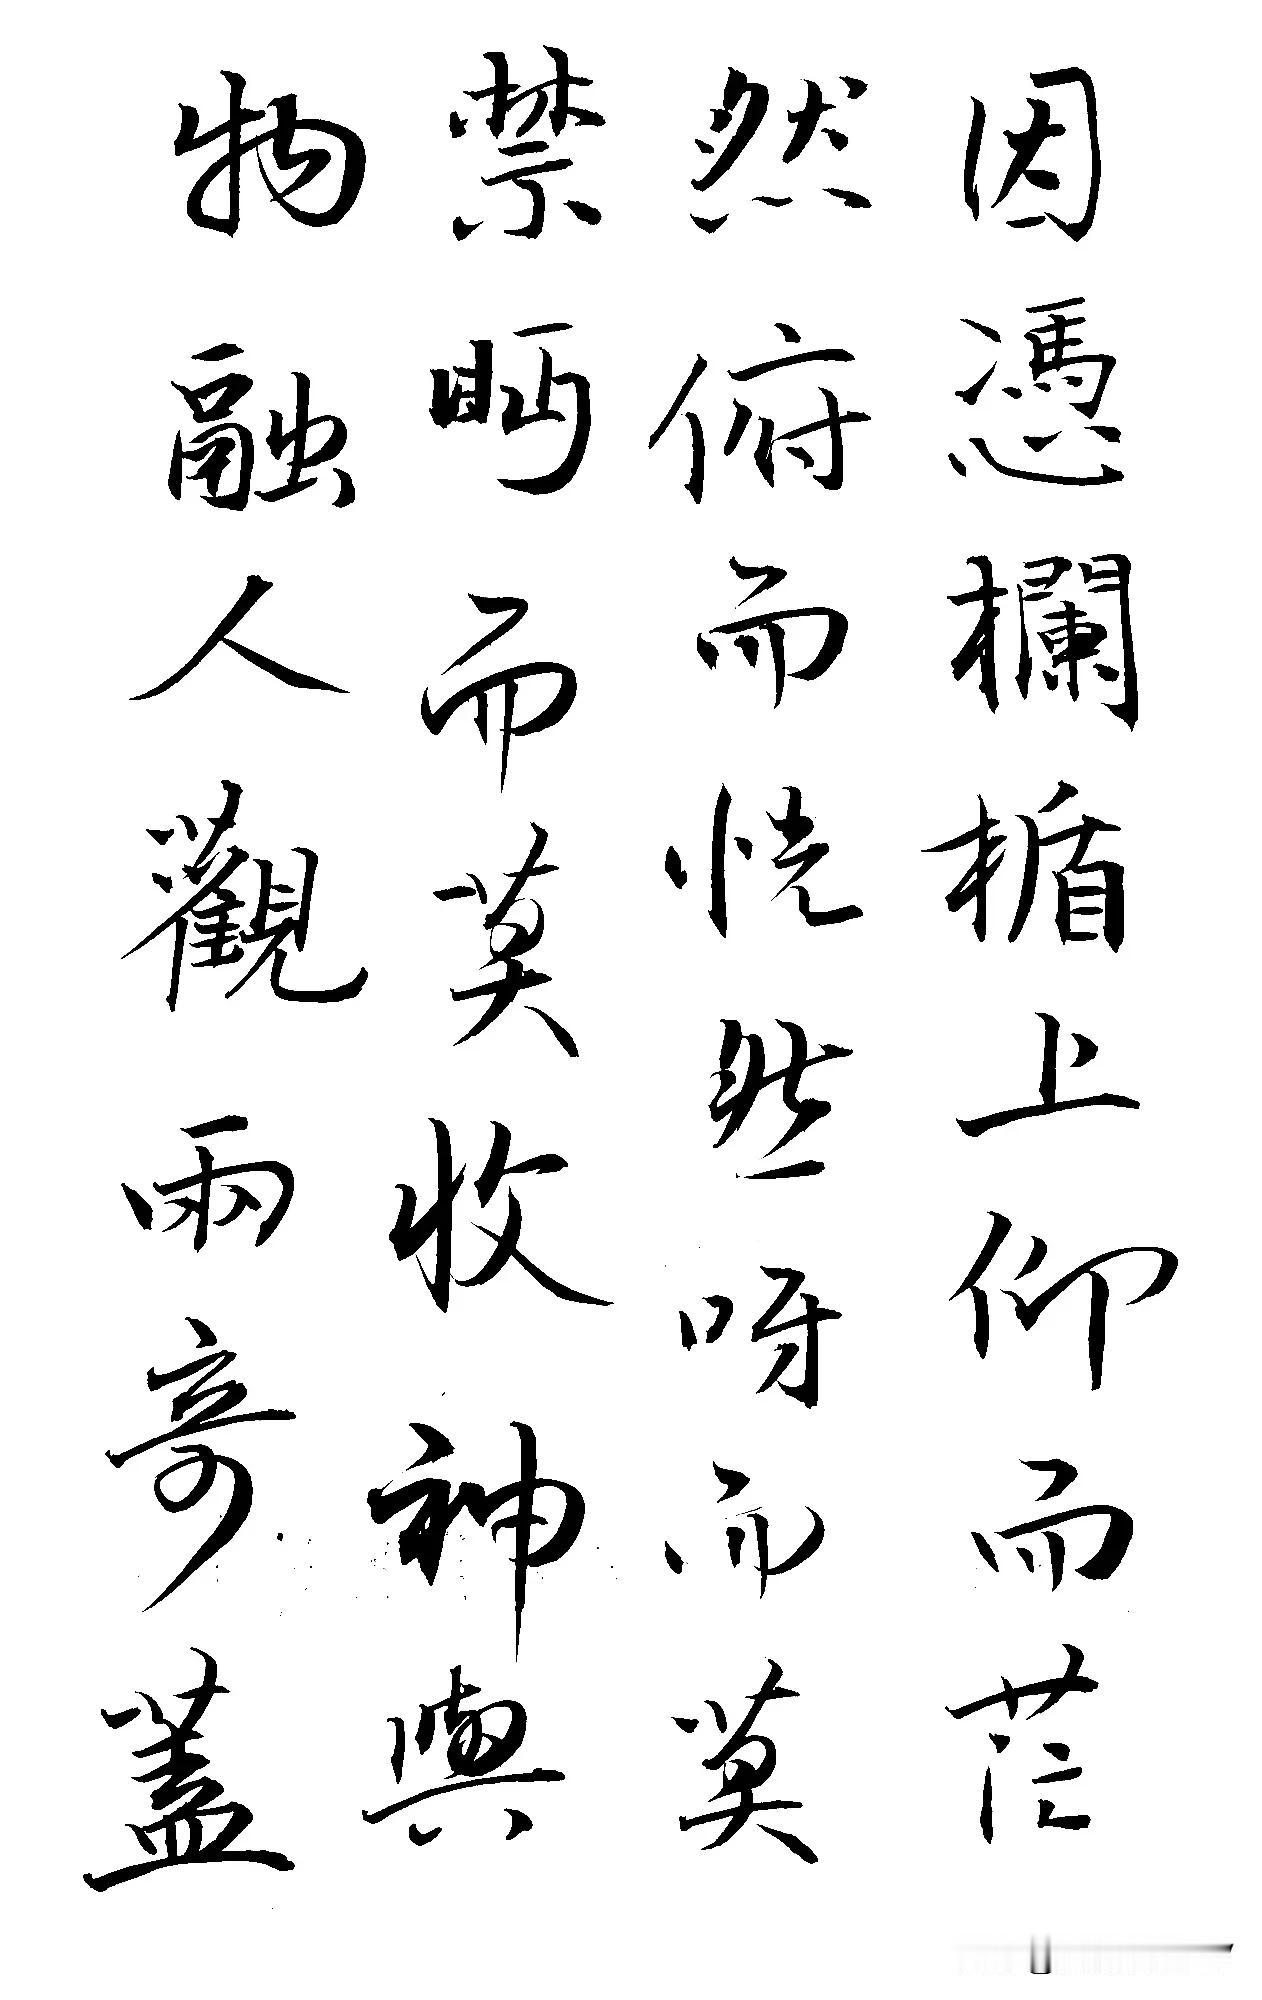 因憑欄楯上仰而茫
然俯而恍然呀而莫
禁眄而莫收神與
物融人觀兩奇蓋